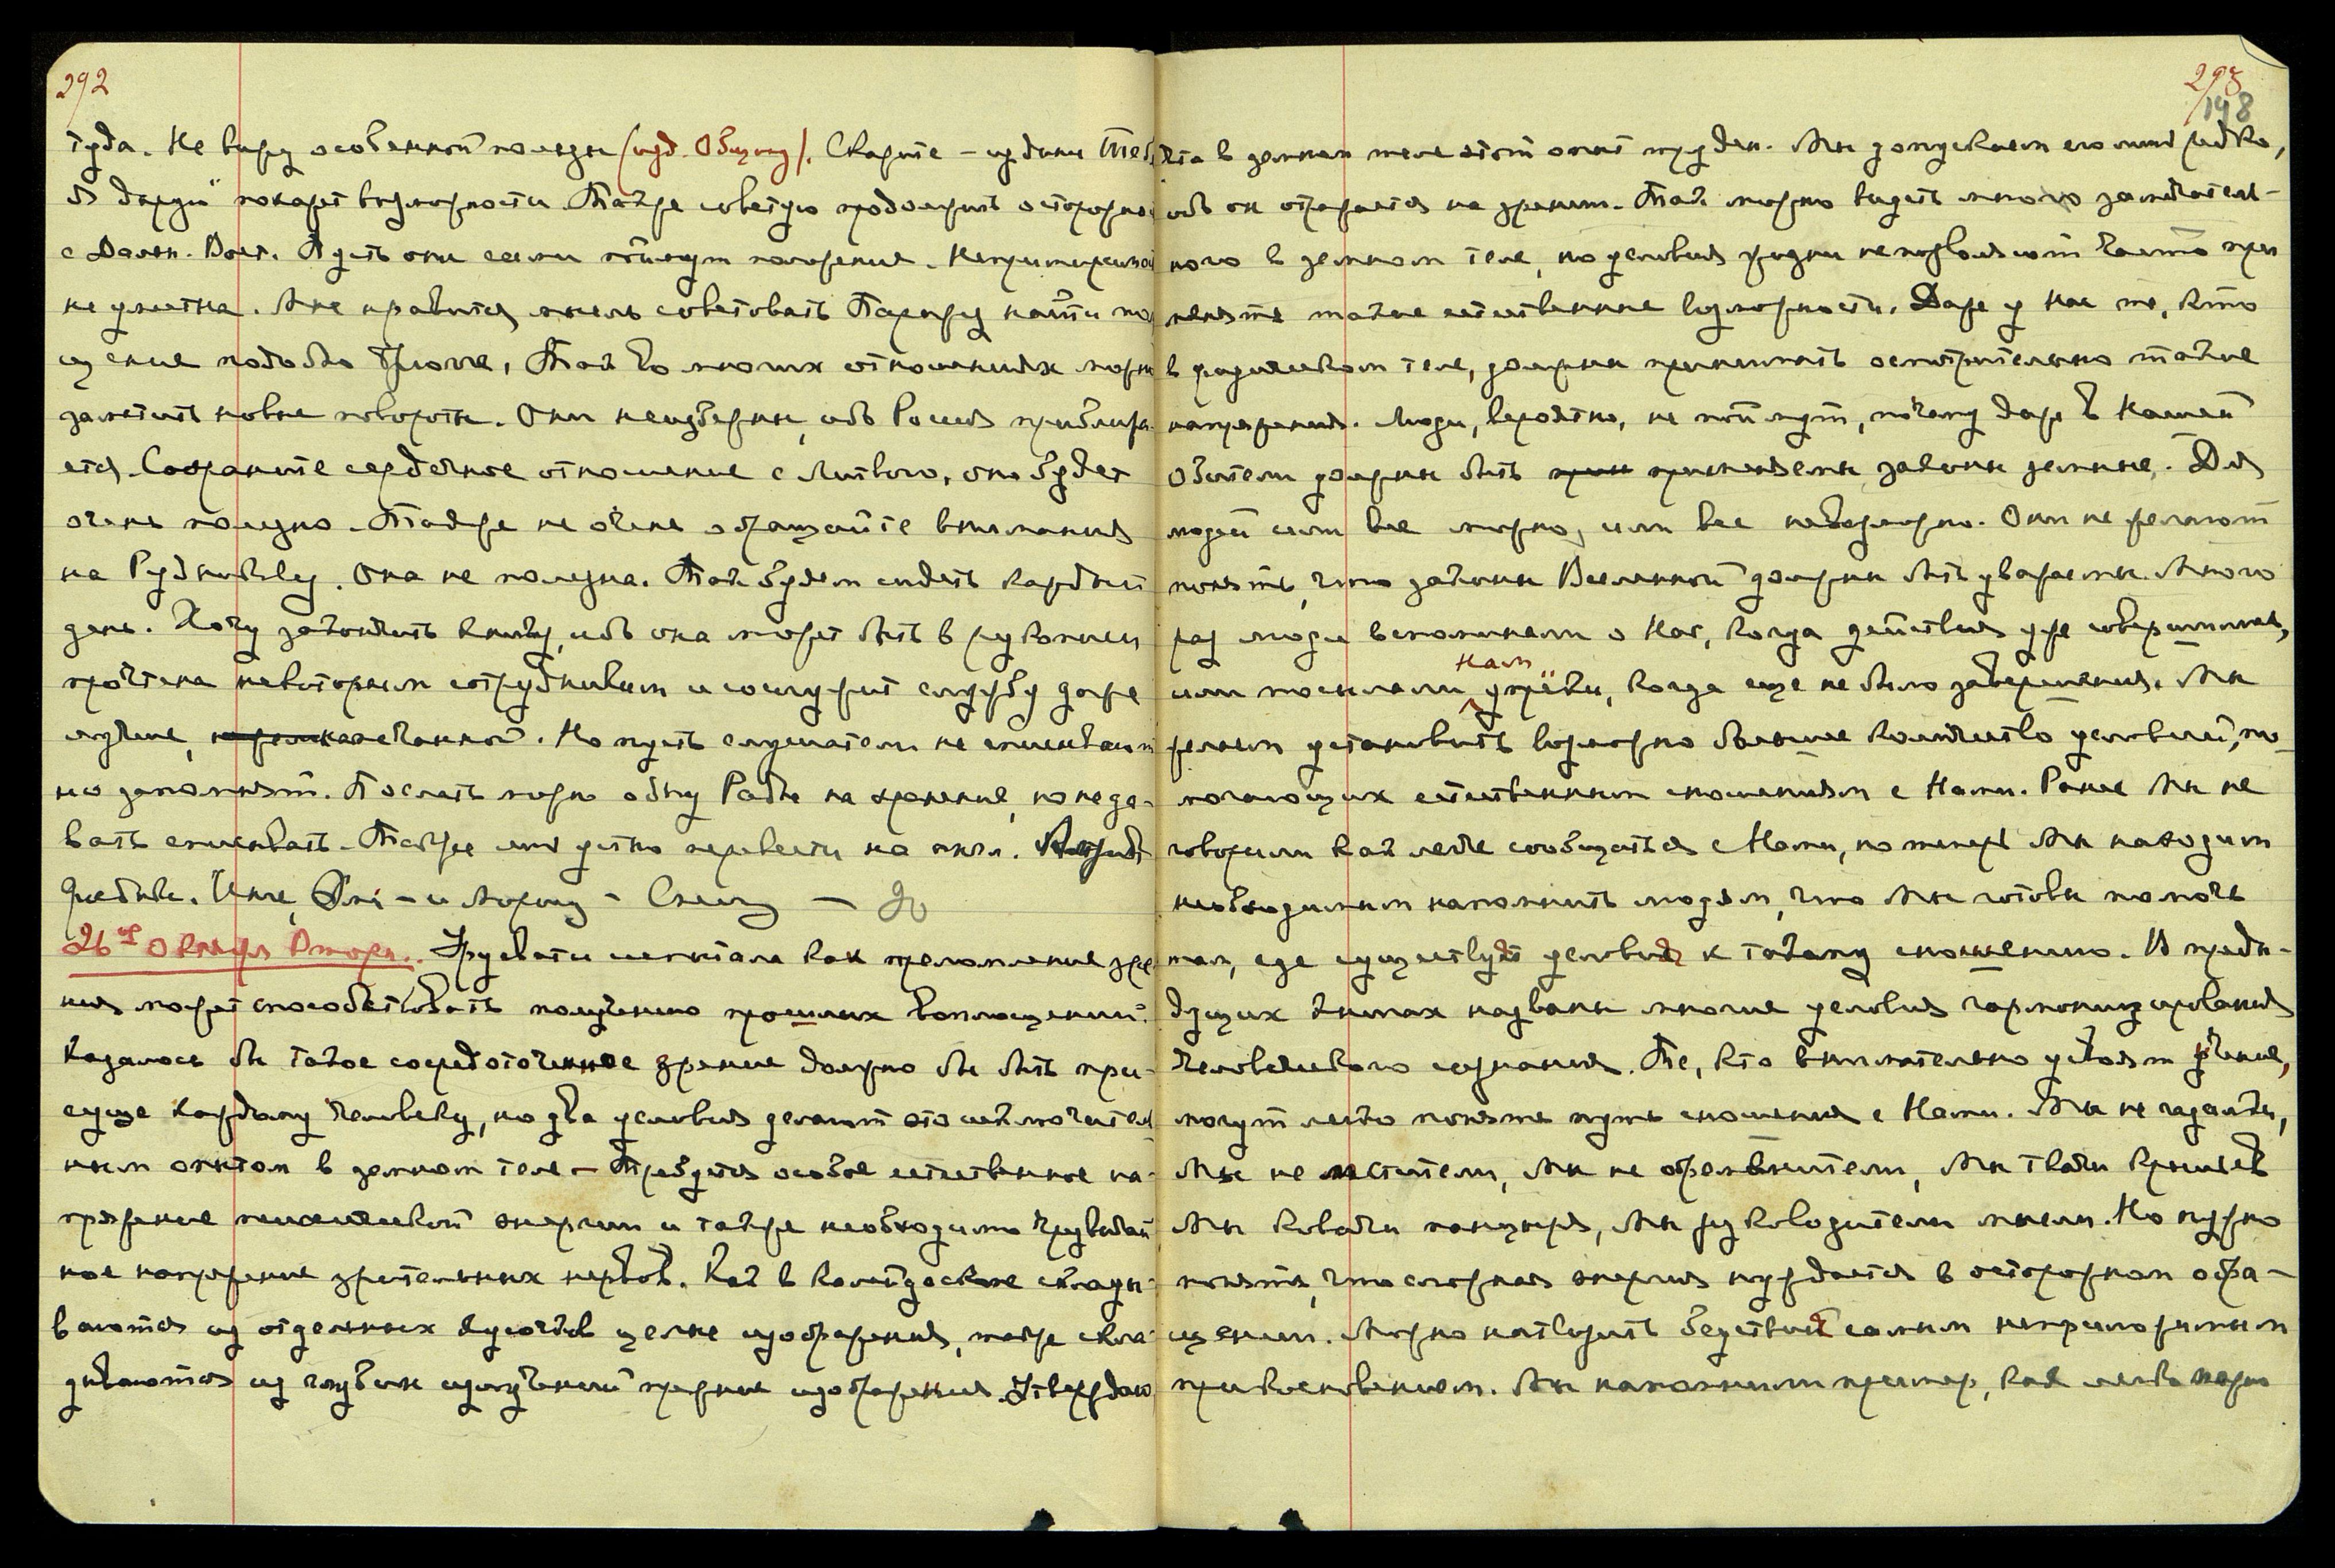 292
туда. Не вижу особенной пользы (изд. Общину). Скажите – издание
покажет возможности. Также советую продолжить осторожно
с Дальн. Вост. Пусть они сами поймут положение. Непримиримость
не уместна. Мне нравится мысль советовать Парижу найти по-
щение подобно Брюгге. Так во многих отношениях можно
заметить новые повороты. Они неизбежны, ибо Россия приближа-
ется. Сохраните сердечное отношение с Литвою, оно будет
очень полезно. Также не очень обращайте внимания
на Рудникову. Она не полезна. Так будем сидеть каждый
день. Хочу закончить книгу, ибо она может быть в рукописи
прочтена некоторым сотрудникам и сослужит службу даже
лучше, напечатанной. Но пусть слушатели не списывают
но запомнят. Послать можно одну Радне на хранение, но не да-
вать списывать. Также или устно перевести на англ.
– и Морису – Спешу –
26го Октября Вторн. Урусвати испытала как преломление зре-
ния может способствовать получению прошлых воплощений.
Казалось бы такое сосредоточенное зрение должно бы быть при-
суще каждому человеку, но два условия делают это исключитель-
ным опытом в земном теле – Требуется особое естественное на-
пряжение психической энергии и также необходимо чрезвычай-
ное напряжение зрительных нервов. Как в калейдоскопе склады-
ваются из отдельных кусочков целые изображения, также скла-
дываются из глубин излучений прежние изображения. Утверждаю
293
148
что в земном теле этот опыт труден. Мы допускаем его лишь редко,
ибо он отражается на зрении. Так можно видеть много замечатель-
ного в земном теле, но условия жизни не позволяют часто при
менять такие естественные возможности. Даже у Нас те, кто
в физическом теле, должны принимать осмотрительно такие
напряжения. Люди, вероятно, не поймут, почему даже в Нашей
Обители должны быть прим применяемы законы земные. Для
людей или все можно, или все невозможно. Они не желают
понять, что законы Вселенной должны быть уважаемы. Много
раз люди вспоминали о Нас, когда действия уже совершились,
Нам
или посылали упрёки, когда еще не было завершения. Мы
желаем установить возможно большее количество условий, по-
могающих естественным сношениям с Нами. Ранее Мы не
говорили как легче сообщаться с Нами, но теперь Мы находим
необходимым напомнить людям, что Мы готовы помочь
там, где существуют условия к такому сношению. В преды-
дущих книгах названы многие условия гармонизирования
человеческого сознания. Те, кто внимательно усвоят учение,
могут легко понять путь сношения с Нами. Мы не гадалки,
Мы не мстители, Мы не обременители, Мы ткачи крыльев
Мы ковачи панциря, Мы руководители мысли. Но нужно
понять, что сложная энергия нуждается в осторожном обра-
щении. Можно натворить бедствий самым неприложимым
прикосновением. Мы напомнили пример, как легко можно